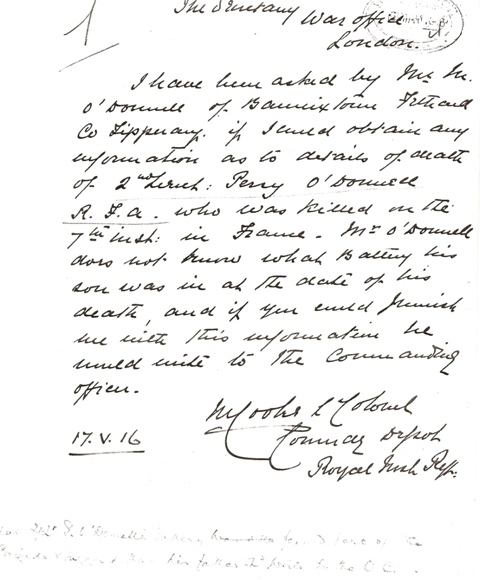 The Secretary War Office
London.
I have been asked by Mr M.
O'Donnell of Bannixtown Fethard
Co Tipperary. if I could obtain any
information as to details of death
of 2nd Lieut: Percy O'Donnell
R.F.a. who was killed on the
7th inst: in France. Mr O'Donnell
does not know what Battery his
son was in at the date of his
death, and if you could furnish
me with this information he
would write to the Commanding
officer.
Cooke L Colonel
17.V.16 Commdg Depot
Royal Irish Regt.
O'Donnell's
his father